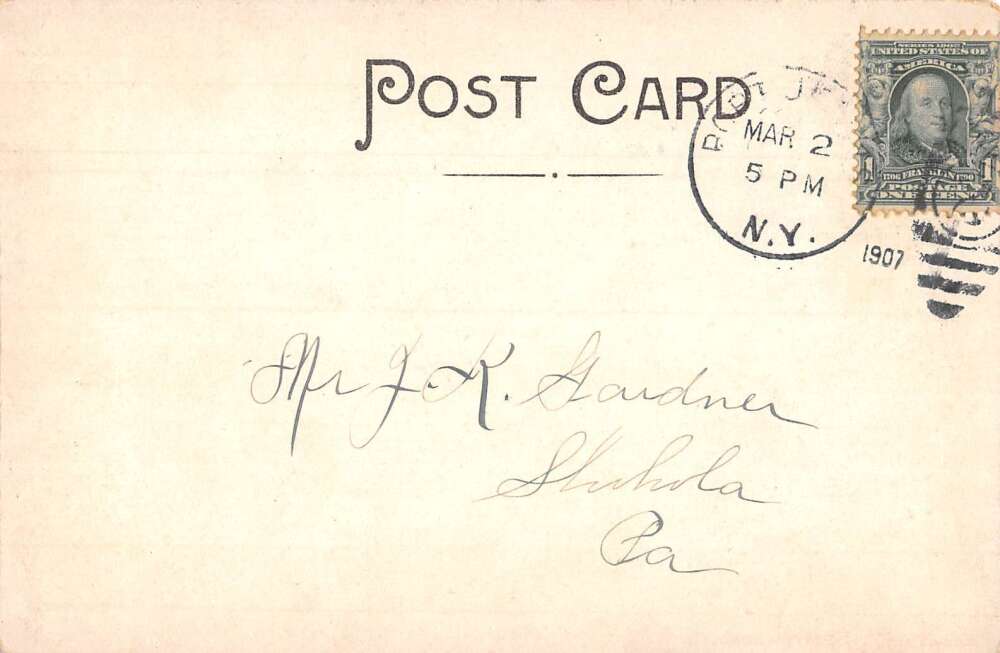 POST CARD
PORT JE
MAR 2
5 PM
N.Y.
1907
SERIES 1902
UNITED STATES OF
AMERICA
1 1
1706 FRANKLIN 1790
POSTAGE
ONE CENT
Mr J. K. Gardner
Shohola
Pa